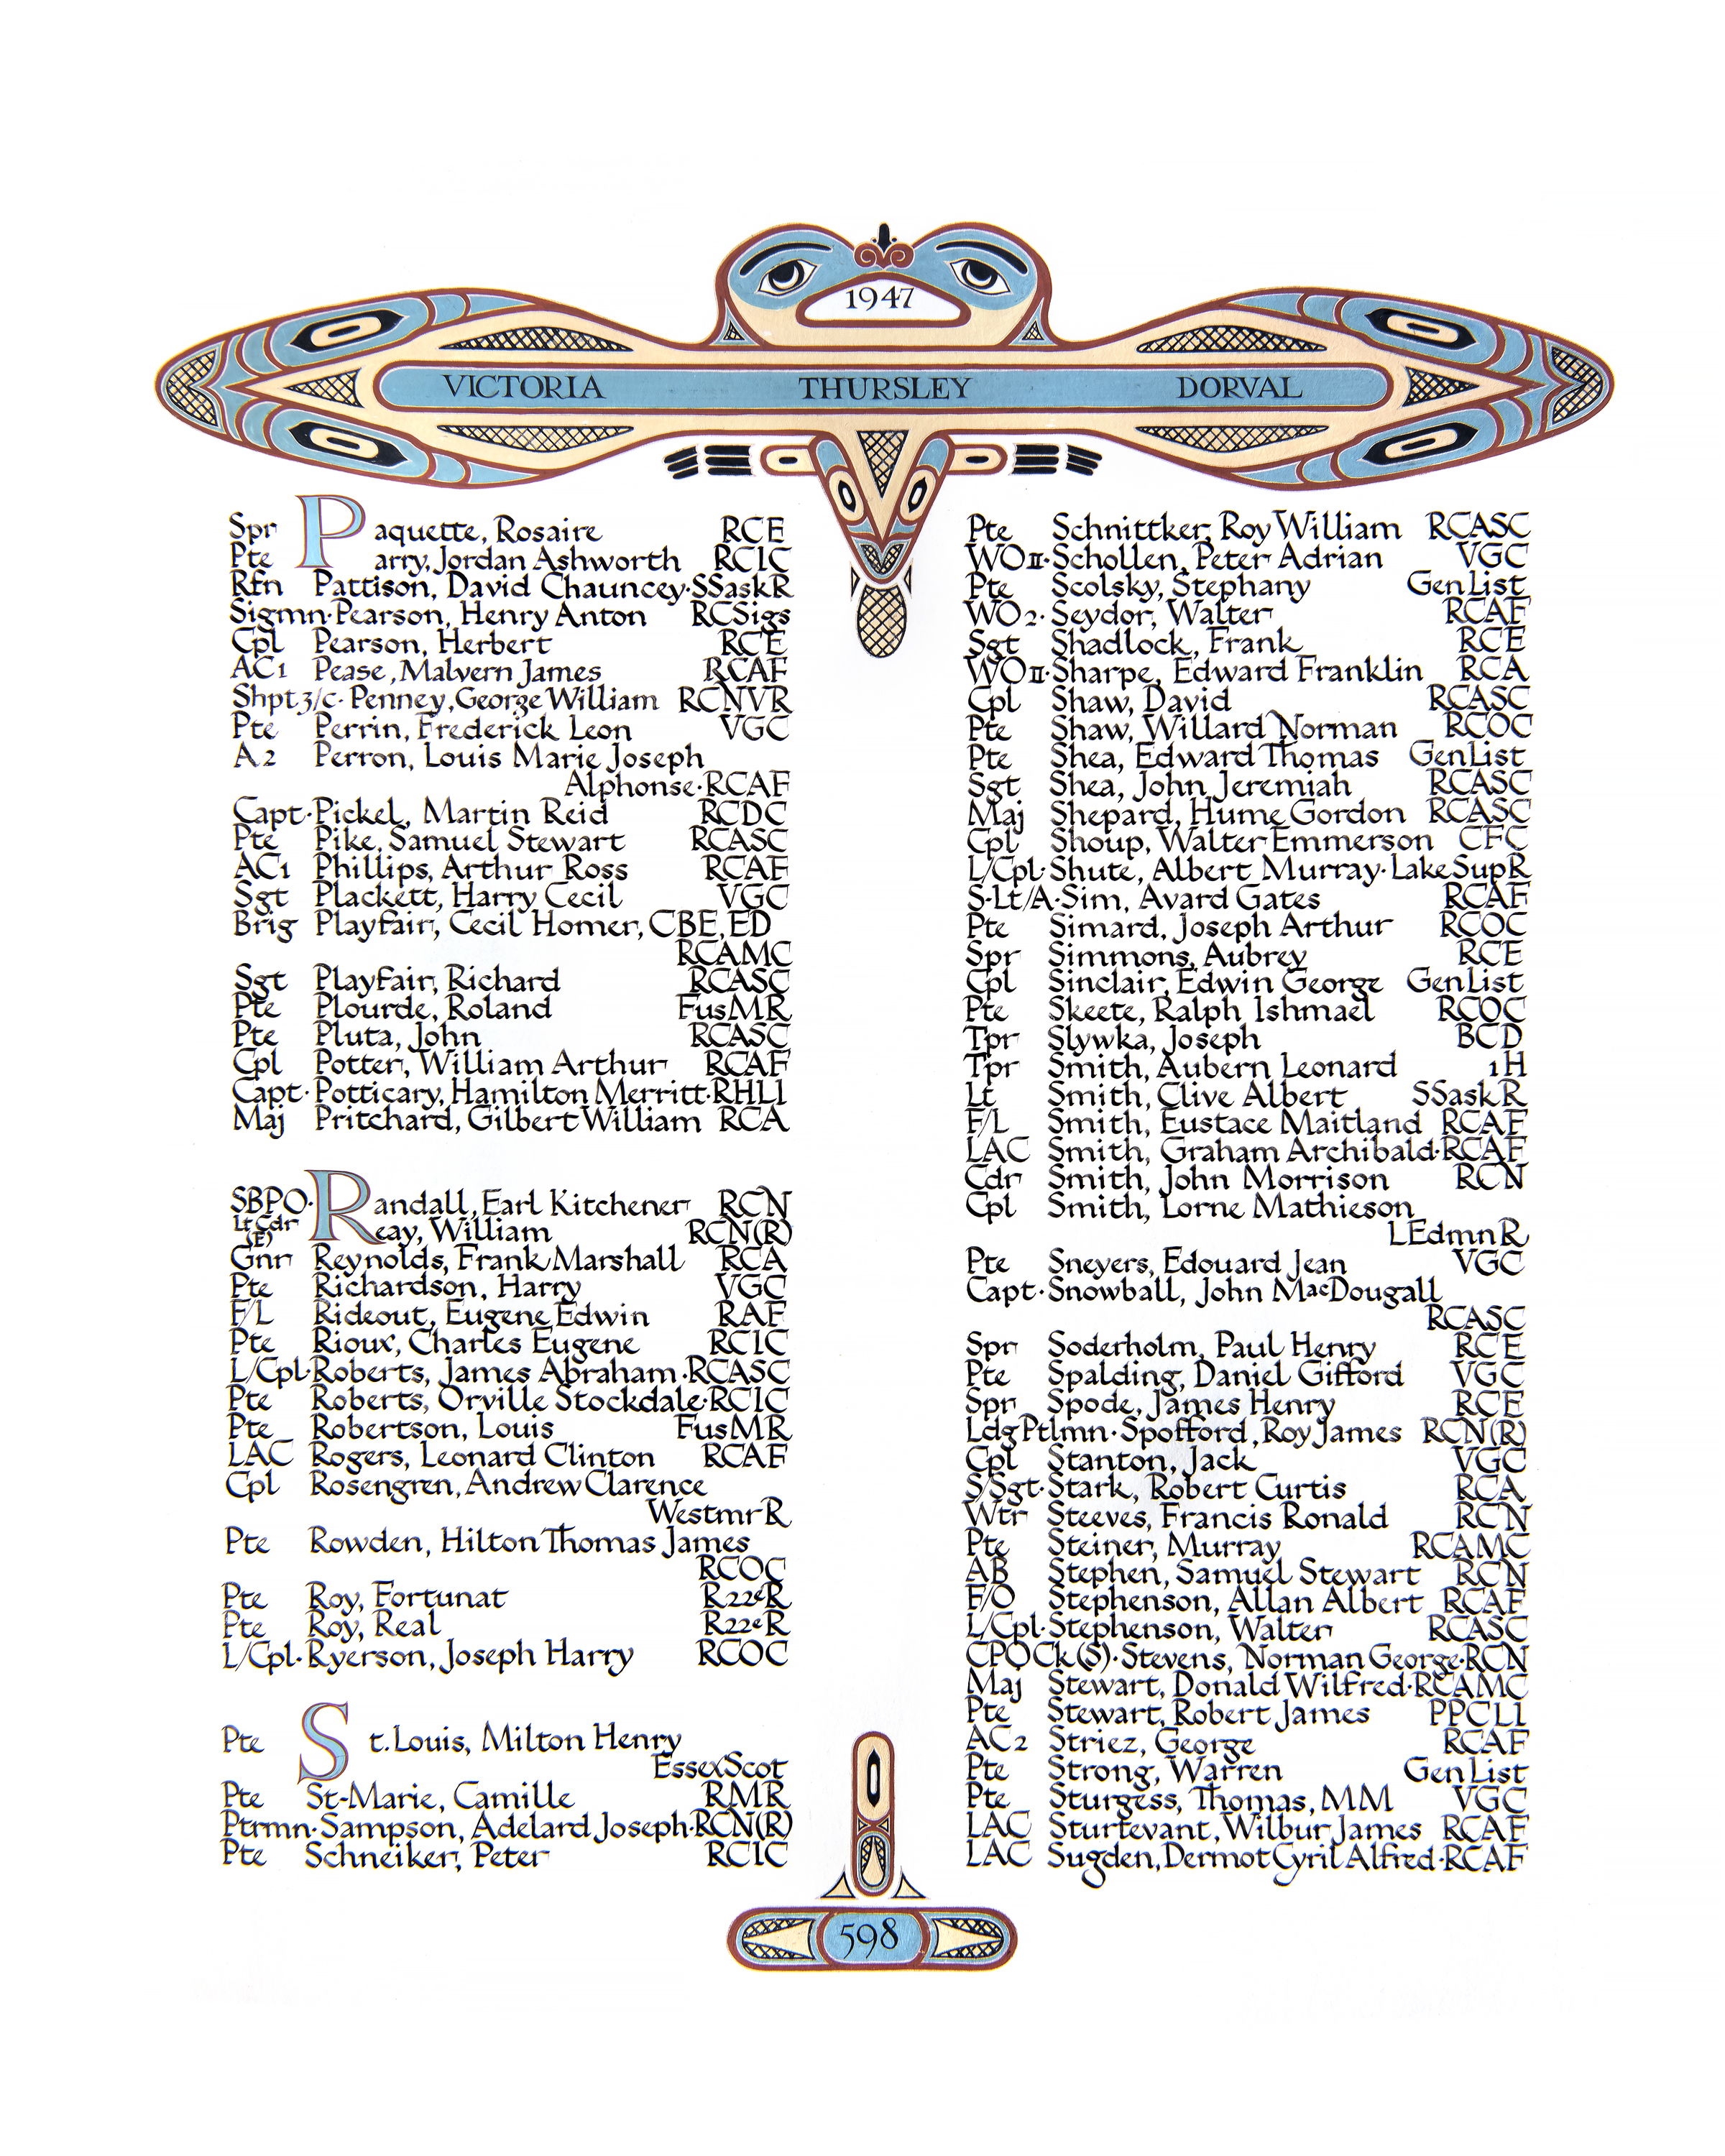 1947
VICTORIA THURSLEY DORVAL
Spr Paquette, Rosaire RCE
Pte Parry, Jordan Ashworth RCIC
Rfn Pattison, David Chauncey·SSaskR
Sigmn·Pearson, Henry Anton RCSigs
Cpl Pearson, Herbert RCE
AC1 Pease, Malvern James RCAF
Shpt 3/c·Penney, George William RCNVR
Pte Perrin, Frederick Leon VGC
A2 Perron, Louis Marie Joseph
Alphonse·RCAF
Capt·Pickel, Martin Reid RCDC
Pte Pike, Samuel Stewart RCASC
AC1 Phillips, Arthur Ross RCAF
Sgt Plackett, Harry Cecil VGC
Brig Playfair, Cecil Homer, CBE, ED
RCAMC
Sgt Playfair, Richard RCASC
Pte Plourde, Roland FusMR
Pte Pluta, John RCASC
Cpl Potter, William Arthur RCAF
Capt·Potticary, Hamilton Merritt·RHLI
Maj Pritchard, Gilbert William RCA
SBPO·Randall, Earl Kitchener RCN
Lt Cdr (E) Reay, William RCN(R)
Gnr Reynolds, Frank Marshall RCA
Pte Richardson, Harry VGC
F/L Rideout, Eugene Edwin RAF
Pte Rioux, Charles Eugene RCIC
L/Cpl·Roberts, James Abraham·RCASC
Pte Roberts, Orville Stockdale·RCIC
Pte Robertson, Louis FusMR
LAC Rogers, Leonard Clinton RCAF
Cpl Rosengren, Andrew Clarence
WestmrR
Pte Rowden, Hilton Thomas James
RCOC
Pte Roy, Fortunat R22eR
Pte Roy, Real R22eR
L/Cpl·Ryerson, Joseph Harry RCOC
Pte St. Louis, Milton Henry
EssexScot
Pte St-Marie, Camille RMR
Ptrmn·Sampson, Adelard Joseph·RCN(R)
Pte Schneiker, Peter RCIC
Pte Schnittker, Roy William RCASC
WOII·Schollen, Peter Adrian VGC
Pte Scolsky, Stephany GenList
WO2·Seydor, Walter RCAF
Sgt Shadlock, Frank RCE
WOII·Sharpe, Edward Franklin RCA
Cpl Shaw, David RCASC
Pte Shaw, Willard Norman RCOC
Pte Shea, Edward Thomas GenList
Sgt Shea, John Jeremiah RCASC
Maj Shepard, Hume Gordon RCASC
Cpl Shoup, Walter Emmerson CFC
L/Cpl·Shute, Albert Murray·LakeSupR
S·Lt/A·Sim, Avard Gates RCAF
Pte Simard, Joseph Arthur RCOC
Spr Simmons, Aubrey RCE
Cpl Sinclair, Edwin George GenList
Pte Skeete, Ralph Ishmael RCOC
Tpr Slywka, Joseph BCD
Tpr Smith, Aubern Leonard 1H
Lt Smith, Clive Albert SSaskR
F/L Smith, Eustace Maitland RCAF
LAC Smith, Graham Archibald·RCAF
Cdr Smith, John Morrison RCN
Cpl Smith, Lorne Mathieson
LEdmnR
Pte Sneyers, Edouard Jean VGC
Capt·Snowball, John MacDougall
RCASC
Spr Soderholm, Paul Henry RCE
Pte Spalding, Daniel Gifford VGC
Spr Spode, James Henry RCE
LdgPtlmn·Spofford, Roy James RCN(R)
Cpl Stanton, Jack VGC
S/Sgt·Stark, Robert Curtis RCA
Wtr Steeves, Francis Ronald RCN
Pte Steiner, Murray RCAMC
AB Stephen, Samuel Stewart RCN
F/O Stephenson, Allan Albert RCAF
L/Cpl·Stephenson, Walter RCASC
CPOCk(S)·Stevens, Norman George·RCN
Maj Stewart, Donald Wilfred·RCAMC
Pte Stewart, Robert James PPCLI
AC2 Striez, George RCAF
Pte Strong, Warren GenList
Pte Sturgess, Thomas, MM VGC
LAC Sturtevant, Wilbur James RCAF
LAC Sugden, Dermot Cyril Alfred·RCAF
598